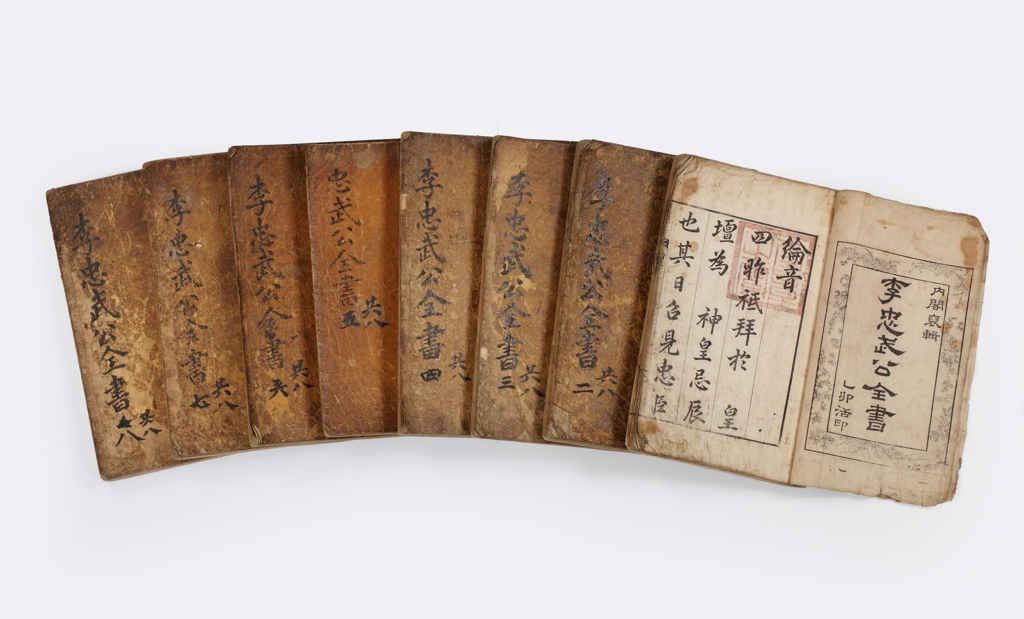 內閣裒輯
李忠武公全書
乙卯活印
綸音
四昨祗拜於 皇
壇為 神皇忌辰
也其日召見忠臣
李忠武公全書 二
共八
李忠武公全書 三
共八
李忠武公全書 四
共八
忠武公全書 五
共八
李忠武公全書 六
共八
李忠武公全書 七
共八
李忠武公全書 八
共八